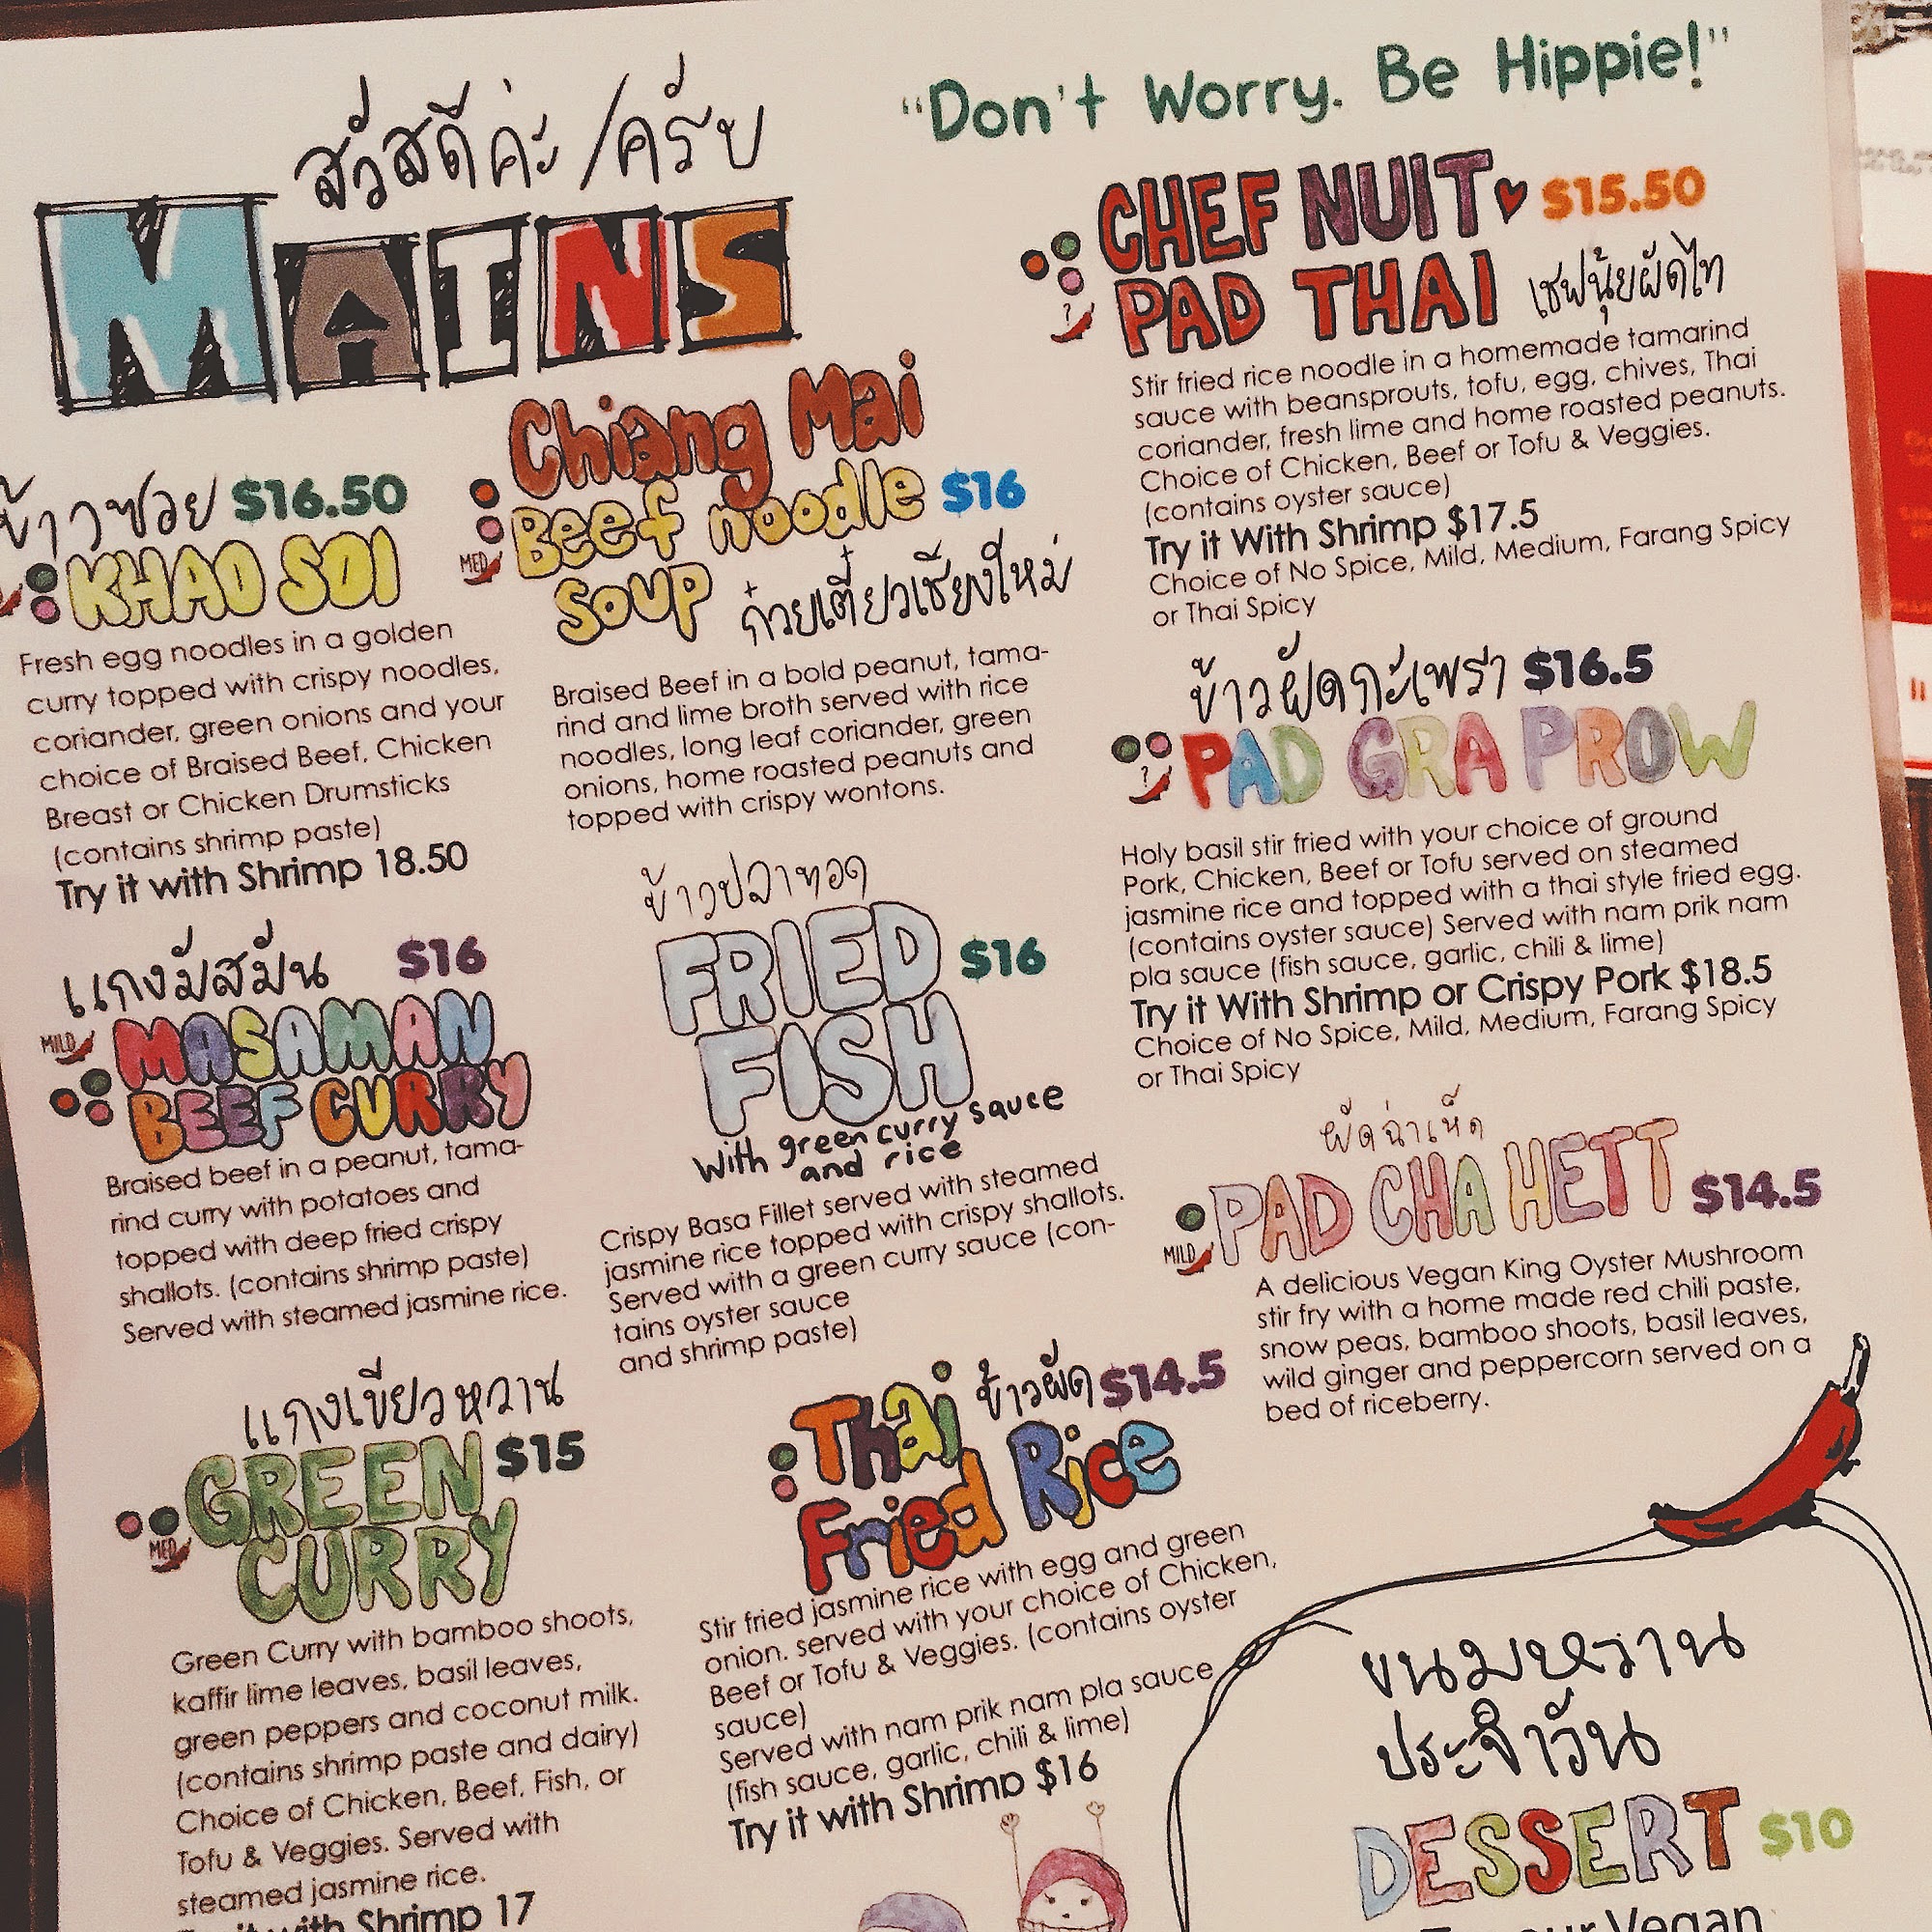 สวัสดีค่ะ/ครับ
MAINS
"Don't Worry. Be Hippie!"
ข้าวซอย $16.50
KHAO SOI
Fresh egg noodles in a golden
curry topped with crispy noodles,
coriander, green onions and your
choice of Braised Beef, Chicken
Breast or Chicken Drumsticks
(contains shrimp paste)
Try it with Shrimp 18.50
แกงมัสมั่น $16
MILD
MASAMAN
BEEF CURRY
Braised beef in a peanut, tama-
rind curry with potatoes and
topped with deep fried crispy
shallots. (contains shrimp paste)
Served with steamed jasmine rice.
แกงเขียวหวาน
GREEN $15
CURRY
MED
Green Curry with bamboo shoots,
kaffir lime leaves, basil leaves,
green peppers and coconut milk.
(contains shrimp paste and dairy)
Choice of Chicken, Beef, Fish, or
Tofu & Veggies. Served with
steamed jasmine rice.
Try it with Shrimp 17
Chiang Mai
Beef noodle $16
MED
Soup ก๋วยเตี๋ยวเชียงใหม่
Braised Beef in a bold peanut, tama-
rind and lime broth served with rice
noodles, long leaf coriander, green
onions, home roasted peanuts and
topped with crispy wontons.
ข้าวปลาทอด
FRIED $16
FISH
with green curry sauce
and rice
Crispy Basa Fillet served with steamed
jasmine rice topped with crispy shallots.
Served with a green curry sauce (con-
tains oyster sauce
and shrimp paste)
Thai ข้าวผัด $14.5
Fried Rice
Stir fried jasmine rice with egg and green
onion. served with your choice of Chicken,
Beef or Tofu & Veggies. (contains oyster
sauce)
Served with nam prik nam pla sauce
(fish sauce, garlic, chili & lime)
Try it with Shrimp $16
CHEF NUIT $15.50
PAD THAI เชฟนุ้ยผัดไท
?
Stir fried rice noodle in a homemade tamarind
sauce with beansprouts, tofu, egg, chives, Thai
coriander, fresh lime and home roasted peanuts.
Choice of Chicken, Beef or Tofu & Veggies.
(contains oyster sauce)
Try it With Shrimp $17.5
Choice of No Spice, Mild, Medium, Farang Spicy
or Thai Spicy
ข้าวผัดกะเพรา $16.5
PAD GRA PROW
?
Holy basil stir fried with your choice of ground
Pork, Chicken, Beef or Tofu served on steamed
jasmine rice and topped with a thai style fried egg.
(contains oyster sauce) Served with nam prik nam
pla sauce (fish sauce, garlic, chili & lime)
Try it With Shrimp or Crispy Pork $18.5
Choice of No Spice, Mild, Medium, Farang Spicy
or Thai Spicy
ผัดฉ่าเห็ด
PAD CHA HETT $14.5
MILD
A delicious Vegan King Oyster Mushroom
stir fry with a home made red chili paste,
snow peas, bamboo shoots, basil leaves,
wild ginger and peppercorn served on a
bed of riceberry.
ขนมหวาน
ประจำวัน
DESSERT $10
our Vegan